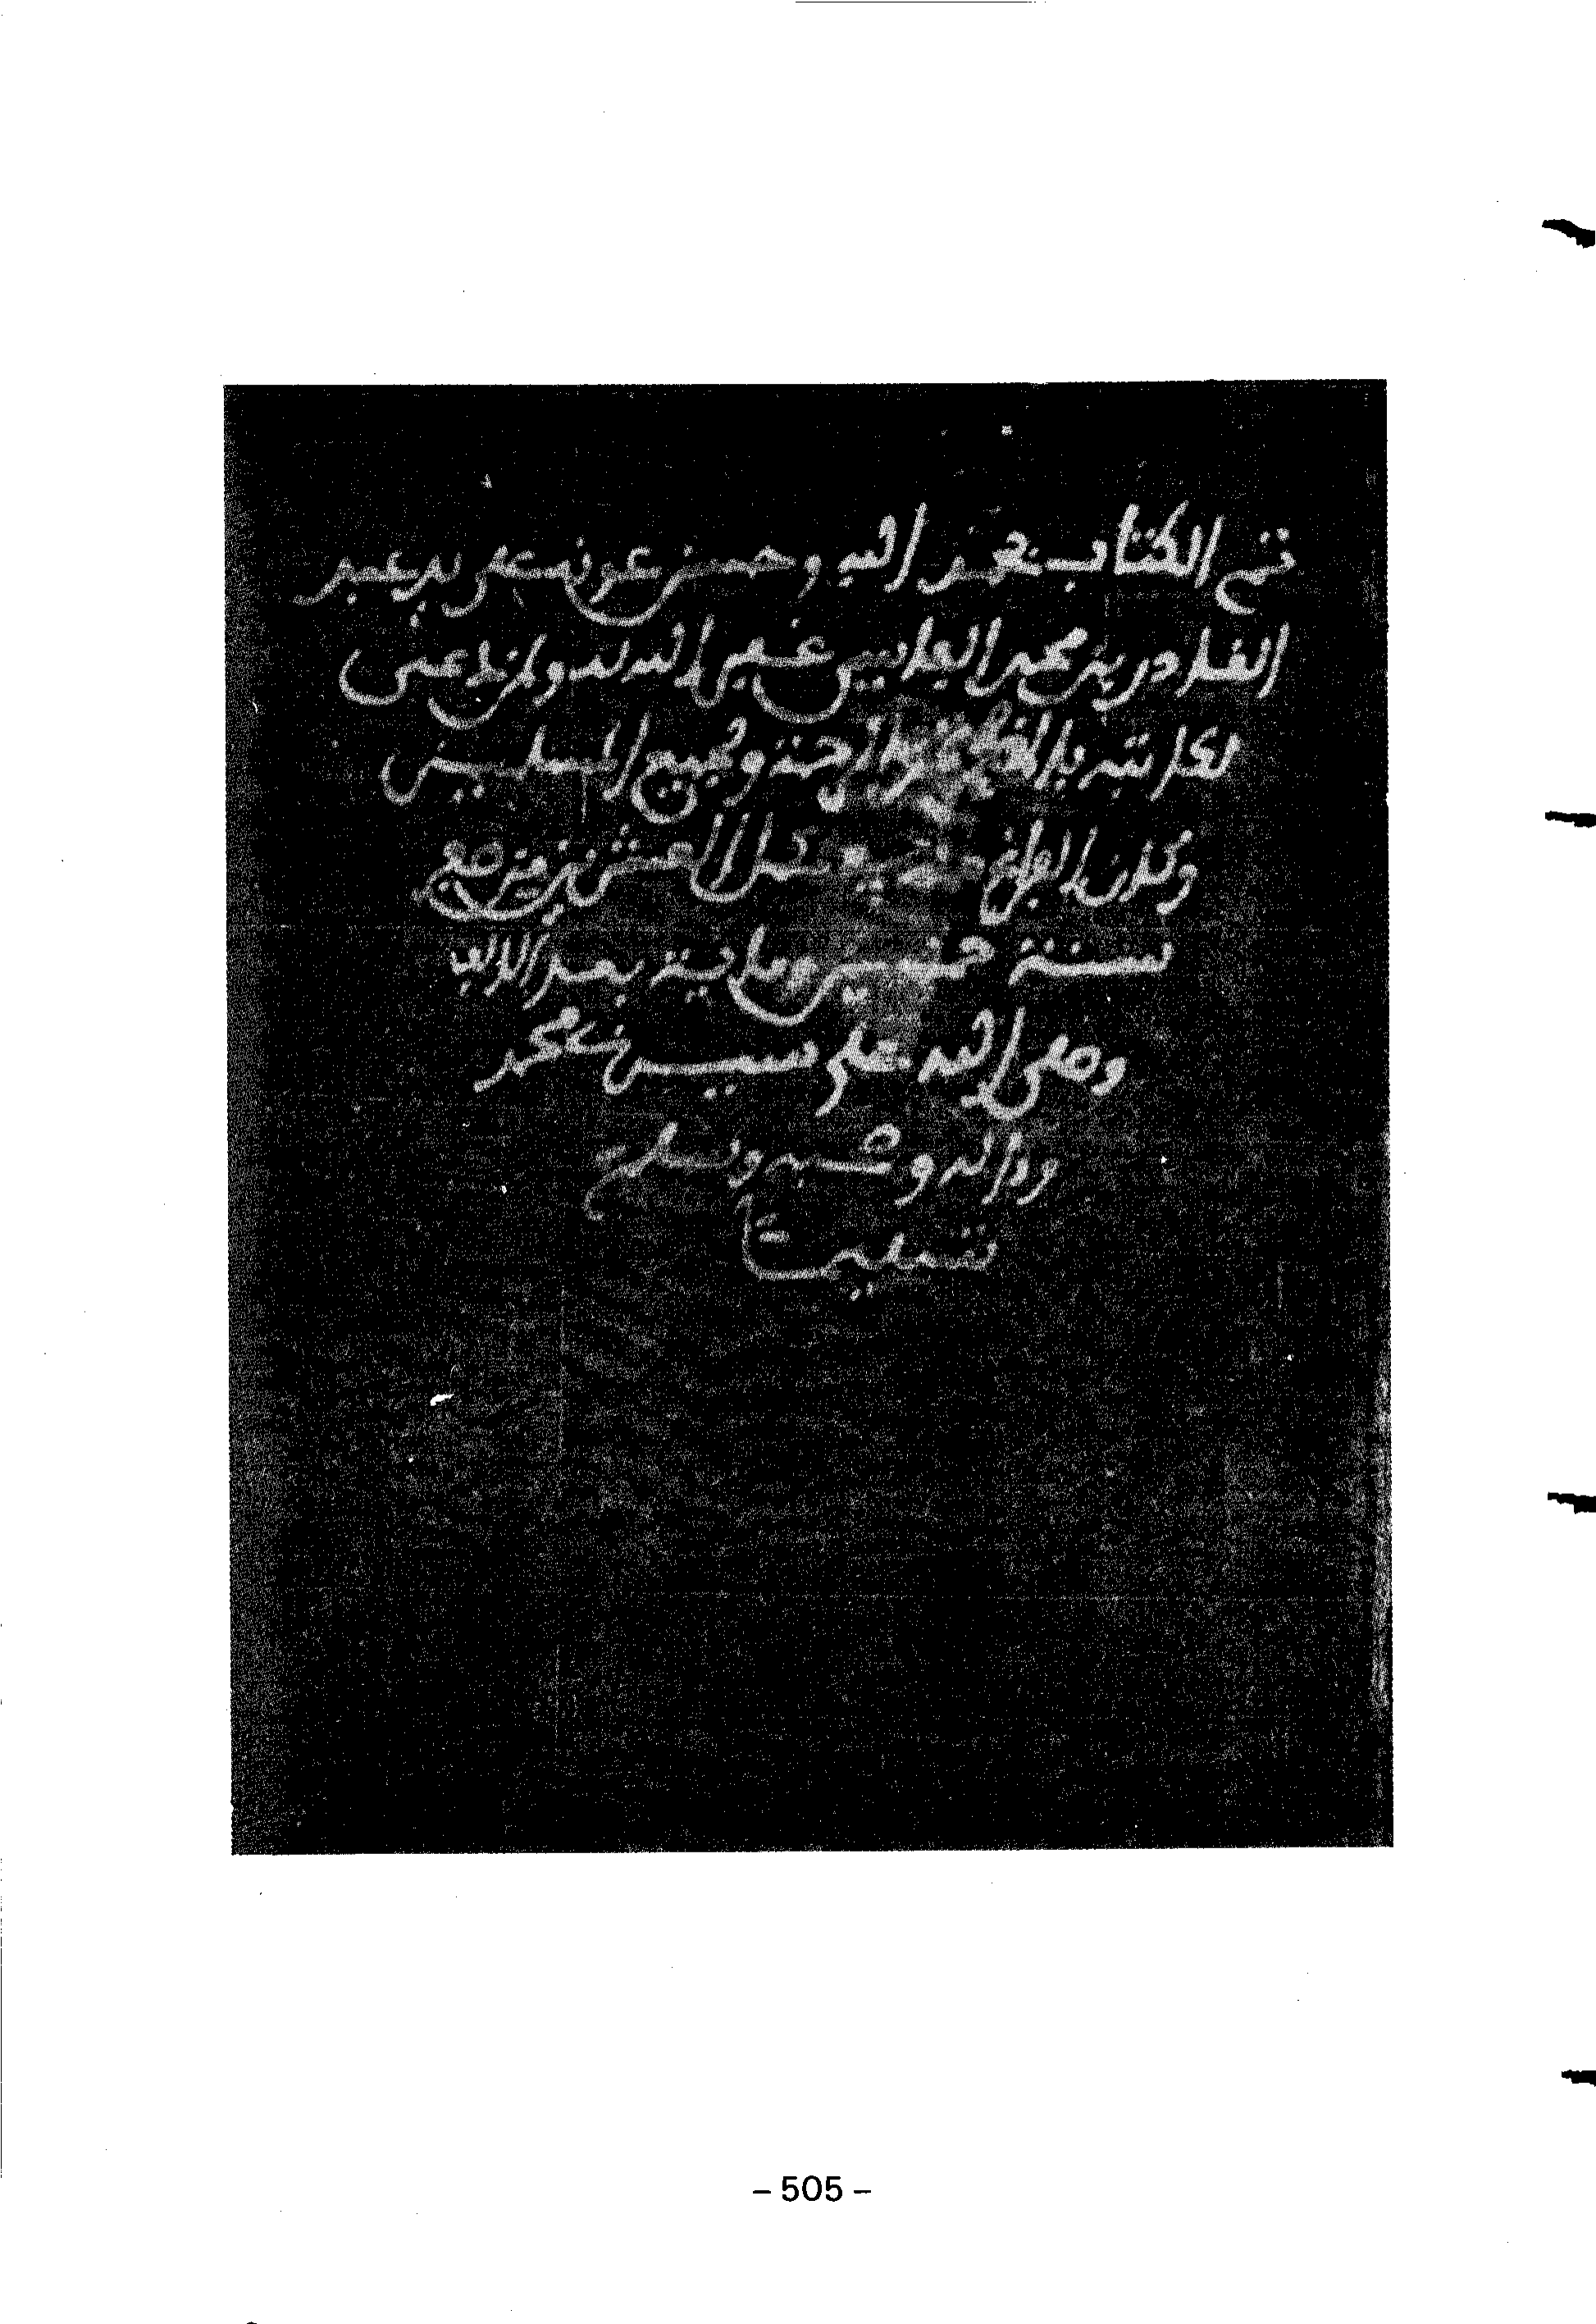 تم الكتاب بحمد الله وحسن عونه على يد عبد
القادر بن محمد الفاسي غفر الله له ولمن دعى
لكاتبه بالمغفرة والرحمة ولجميع المسلمين
وكان الفراغ العشرين من صفر
سنة خمسين ومائة بعد الالف
وصلى الله على سيدنا محمد
وءاله وصحبه وسلم
تسليما
- 505 -